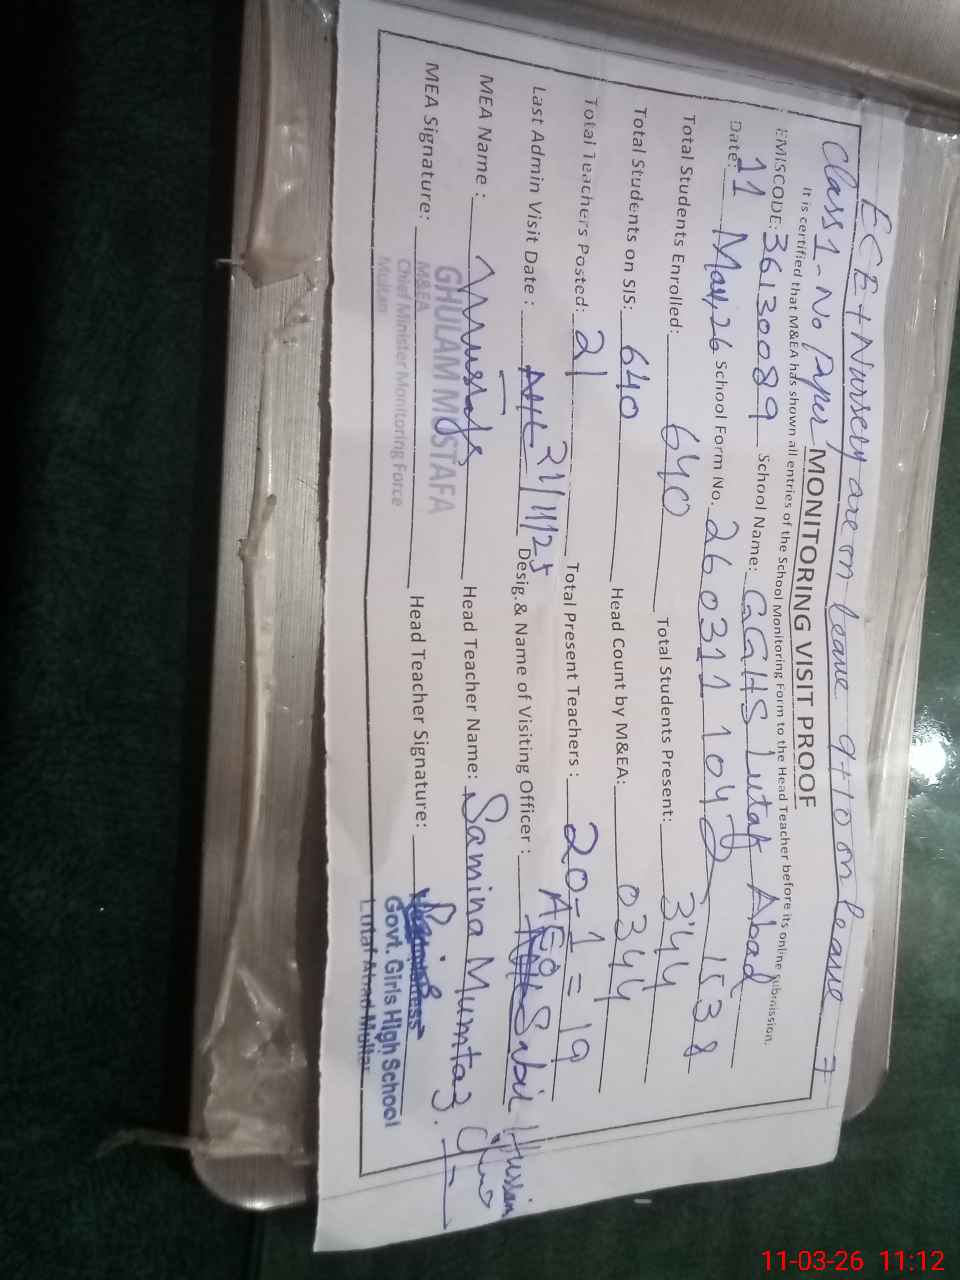 ECE + Nursery are on leave 9+10 on leave
Class 1 - No Paper 7
MONITORING VISIT PROOF
It is certified that M&EA has shown all entries of the School Monitoring Form to the Head Teacher before its online submission.
EMISCODE: 36130089 School Name: GGHS Lutaf Abad
Date: 11 Mar, 26 School Form No. 260311 104 1538
Total Students Enrolled: 640 Total Students Present: 344
Total Students on SIS: 640 Head Count by M&EA: 0344
Total Teachers Posted: 21 Total Present Teachers : 20-1=19
Last Admin Visit Date : 21/11/25 Desig.& Name of Visiting Officer : AEO Sabir Hussain
MEA Name : Mustafa Head Teacher Name: Samina Mumtaz
MEA Signature: Head Teacher Signature:
GHULAM MUSTAFA
M&EA
Chief Minister Monitoring Force
Multan
Govt. Girls High School
Lutaf Abad Multan
11-03-26 11:12